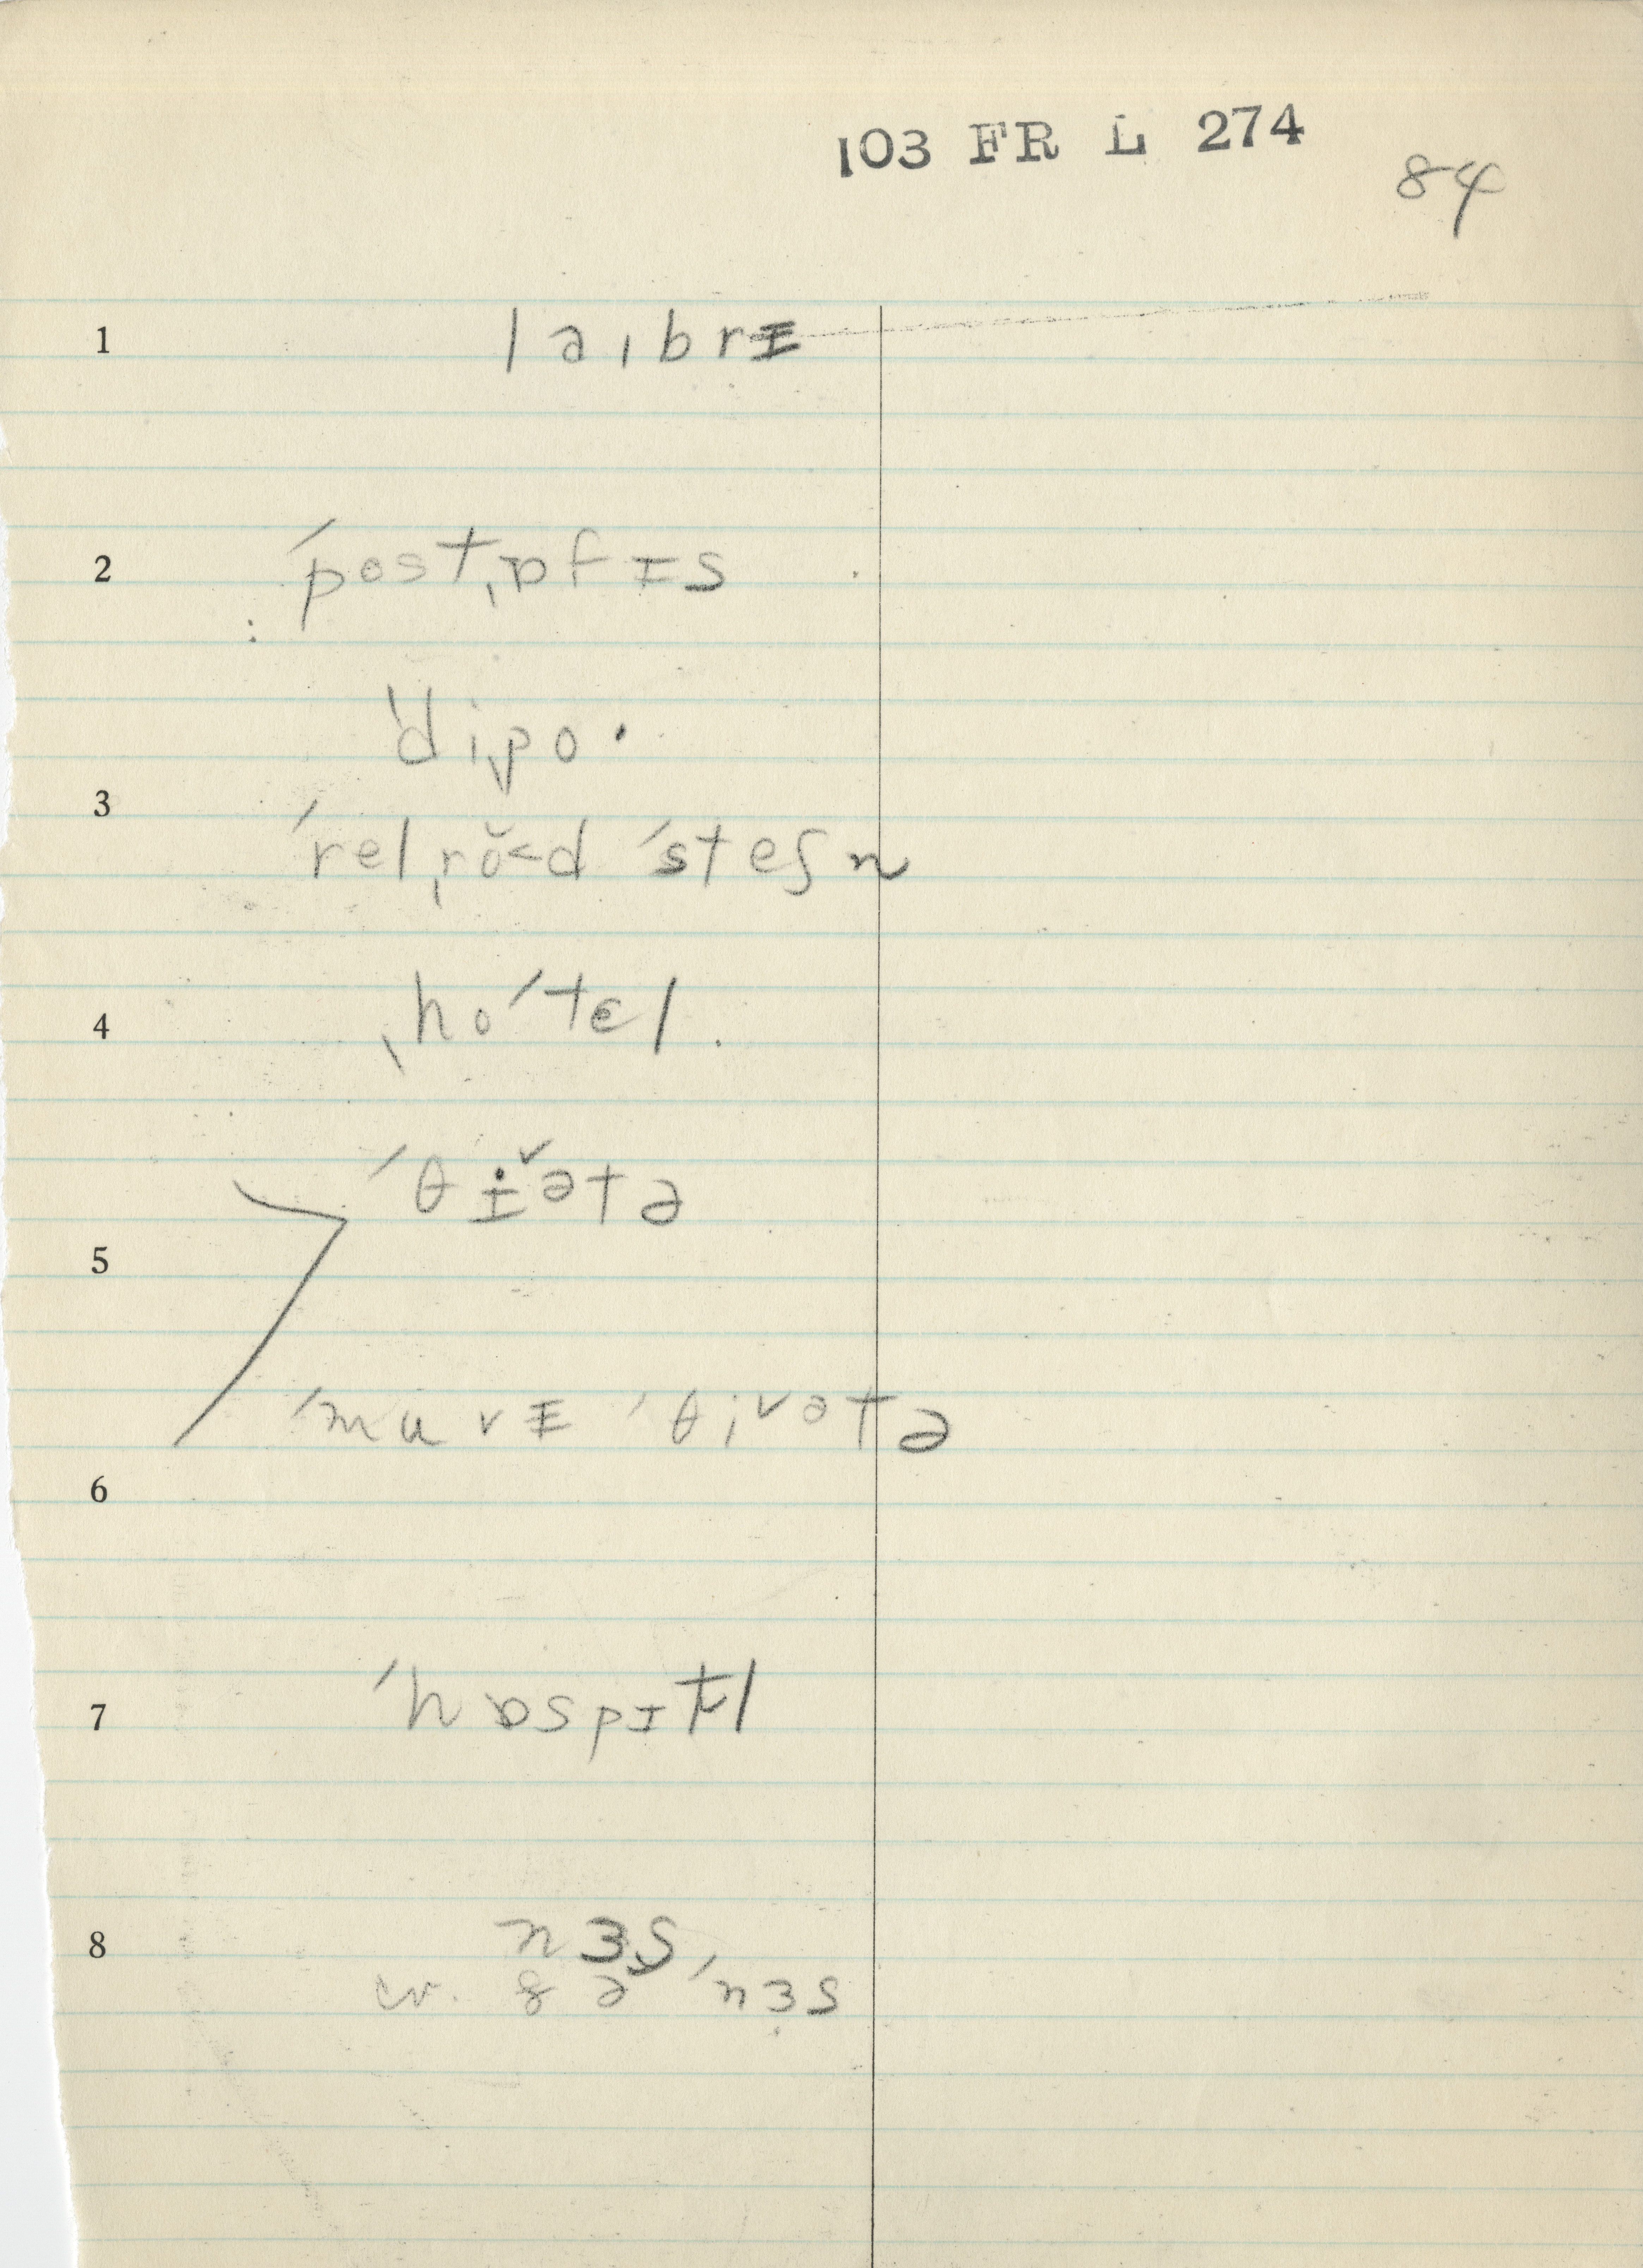 103 FR L 274
84
1 laıbrɪ
2 ˈpostˌɒfɪs
ˈdiˌpo·
3 ˈrelˌrŏ˂d ˈsteʃn
4 ˌhoˈtɛl.
ˈθɪ̇ˇətə
5
ˈmuvɪ ˈθiˇətə
6
7 ˈhɒspɪtl
8 nɜs,
cv. 8 ə ˈnɜs